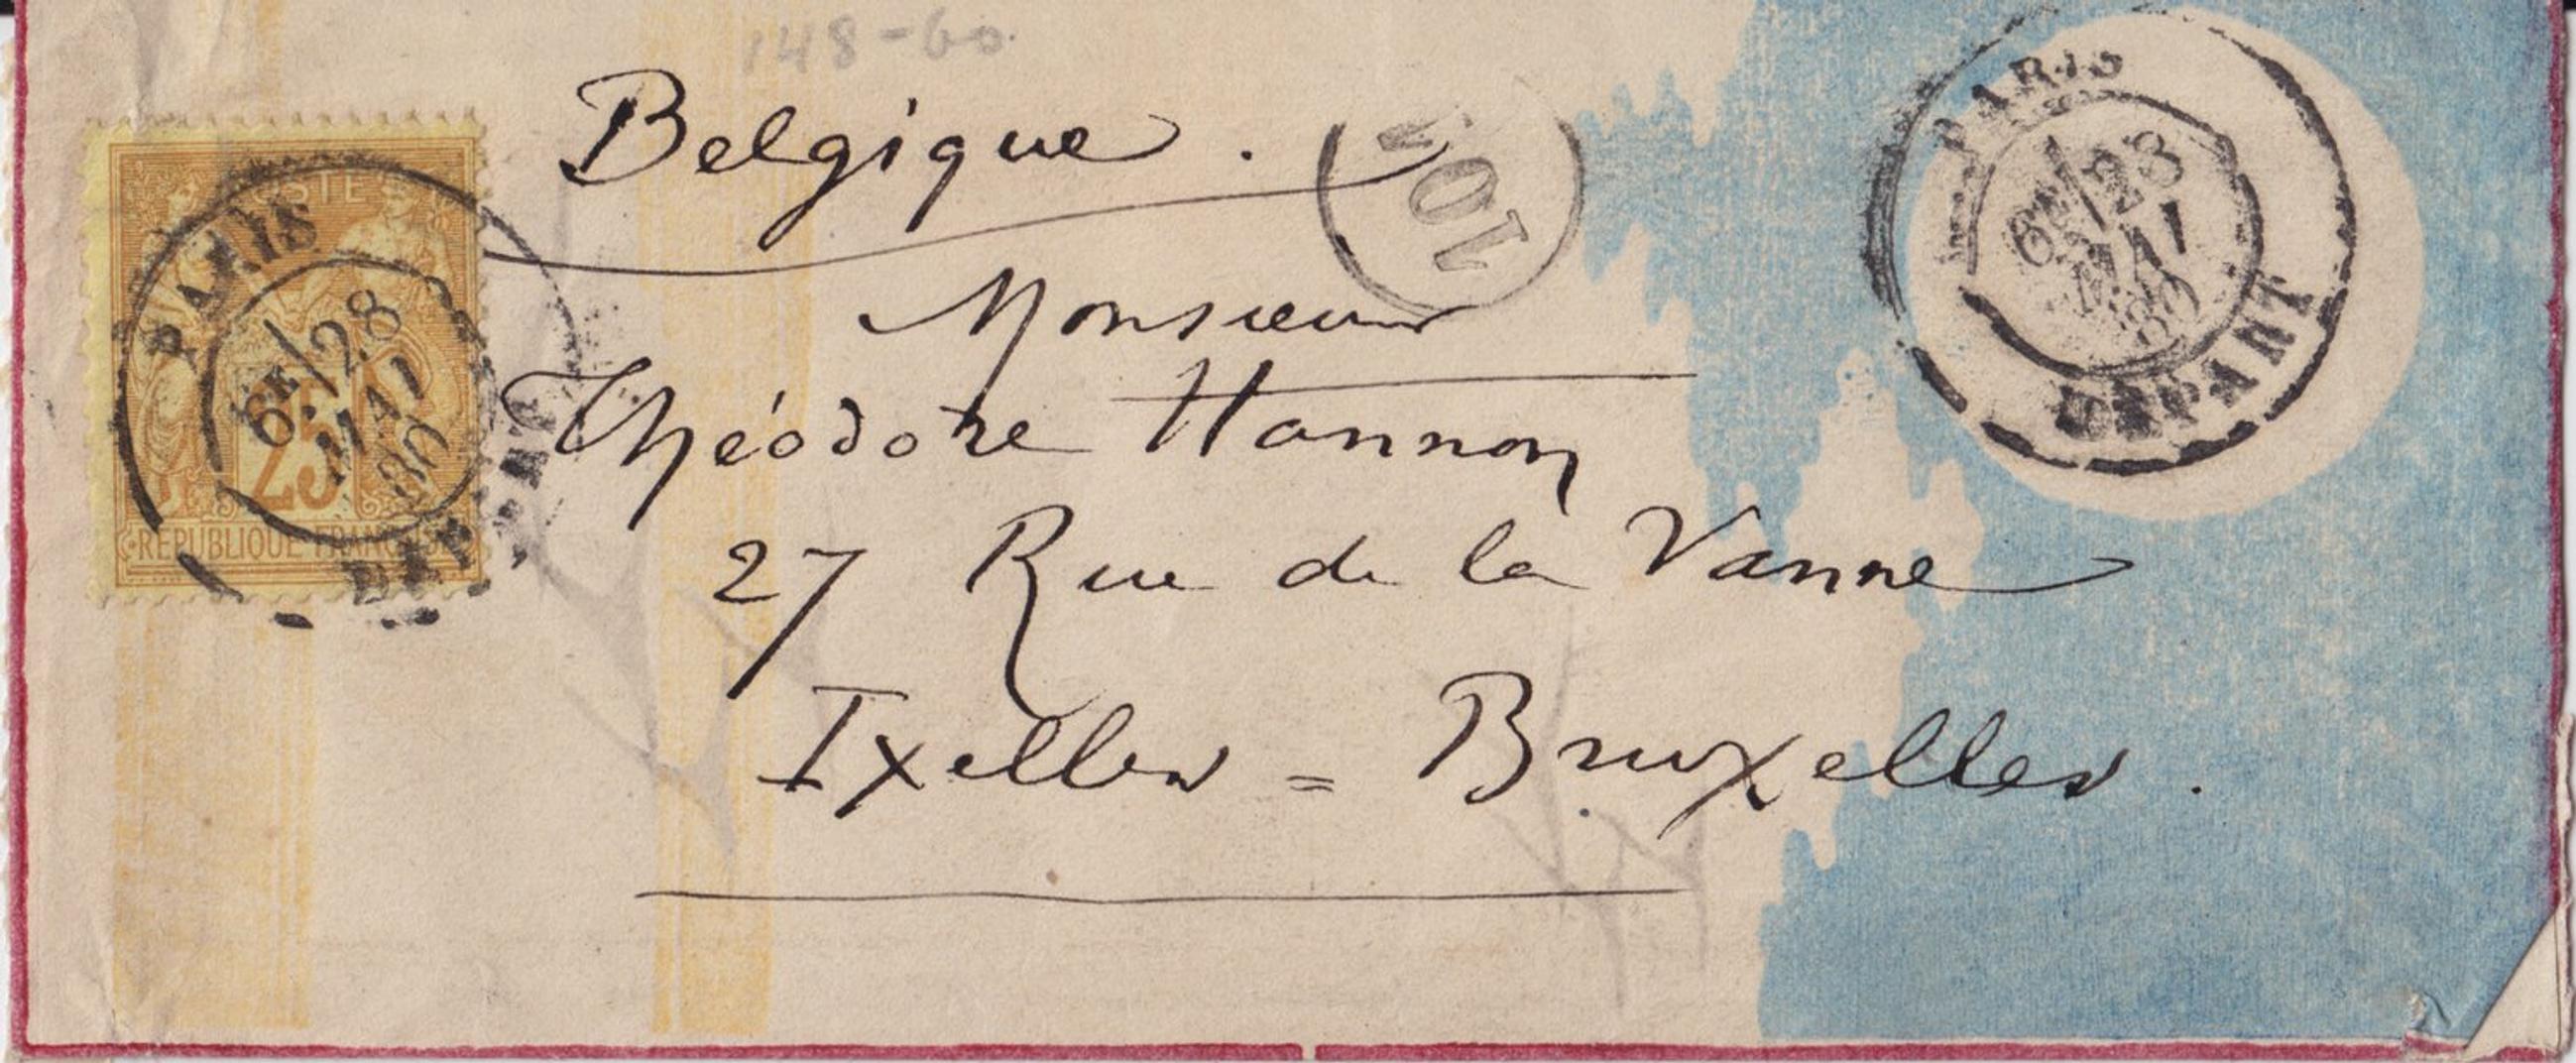 148-60
Belgique.
Monsieur
Théodore Hannon
27 Rue de la Vanne
Ixelles = Bruxelles.
POSTES
25
REPUBLIQUE FRANÇAISE
PARIS
6E/28
MAI
80
DEPART
PARIS
6E/28
MAI
80
DEPART